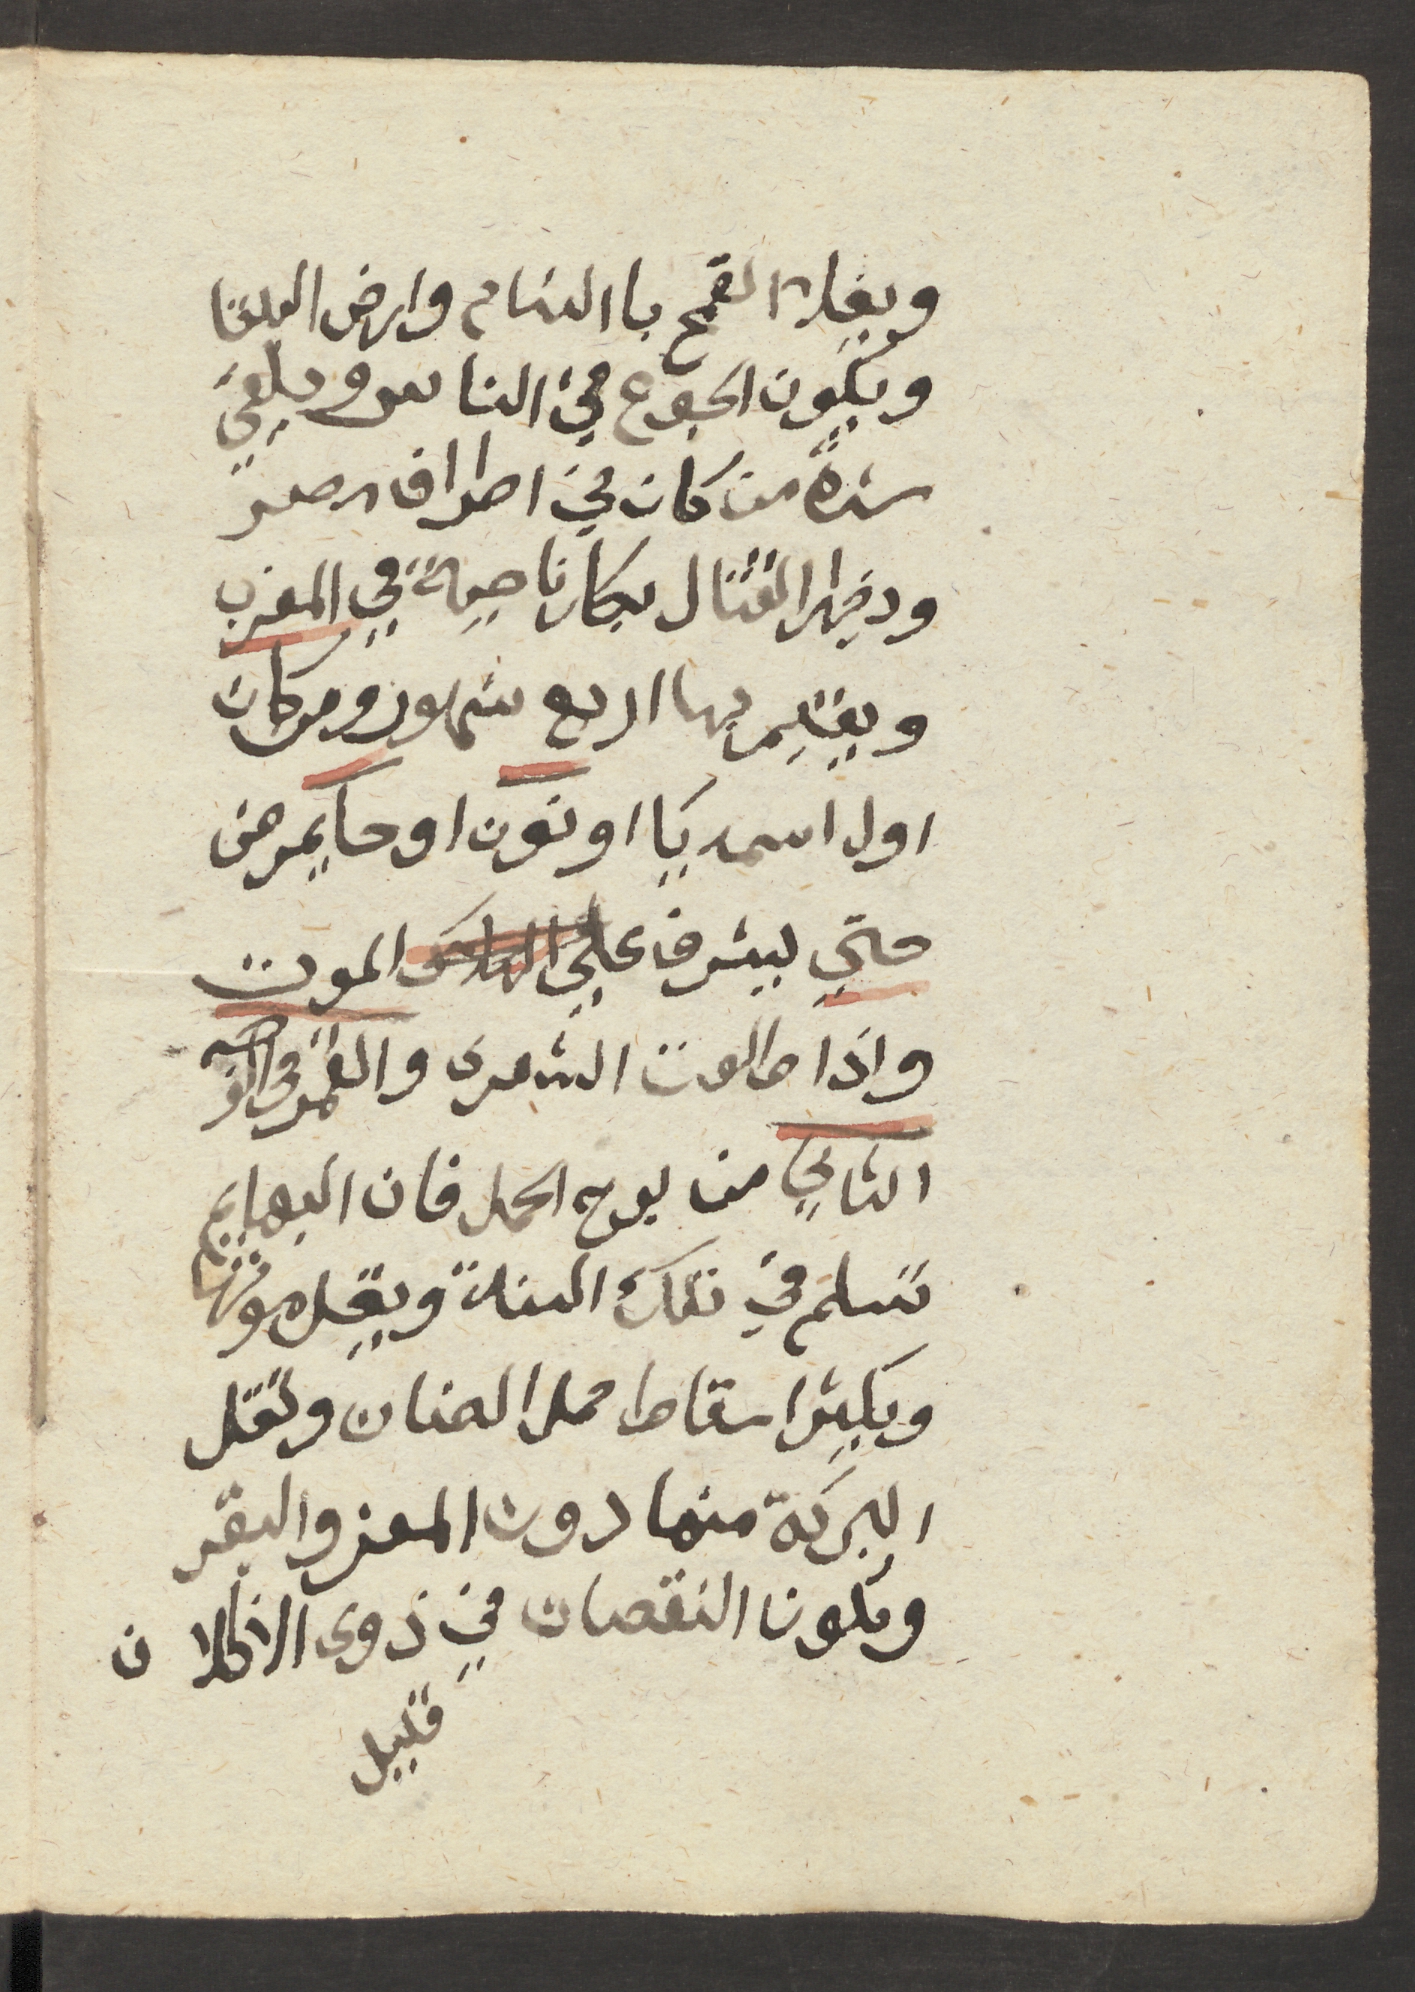 ويغلا القمح باالشام وارض البلقا
ويكون الجوع في الناس ويلقي
شدة من كان في اطراف مصر
ويظهر القتال بكل ناحية في المغرب
ويقيم بها اربع شهور ومن كان
اول اسمه يا او نون او حا يمرض
حتي يشرف علي الهلاك الموت
واذا طلعت الشعرى والقمر في الوجه
الثاني من برج الحمل فان البهايم
تسلم في تلك السنة ويقل موتها
ويكثر اسقاط حمل الضان وتقل
البركة منها دون المعز والبقر
ويكون النقصان في ذوى الاظلاف
قليل